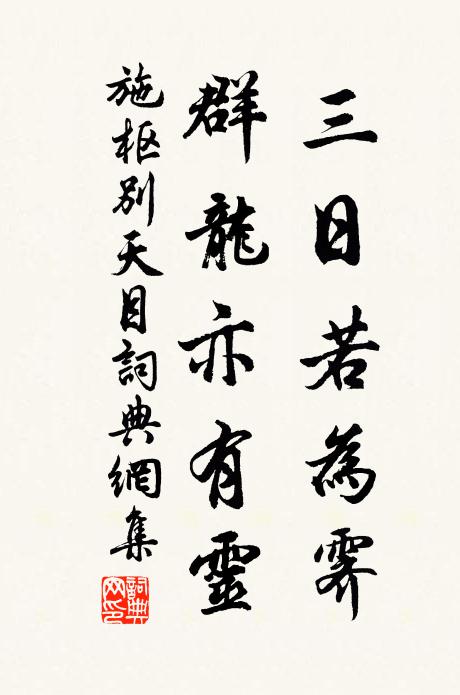 三日若為霽
群龍亦有靈
施枢別天目詞典網集
詞典网印